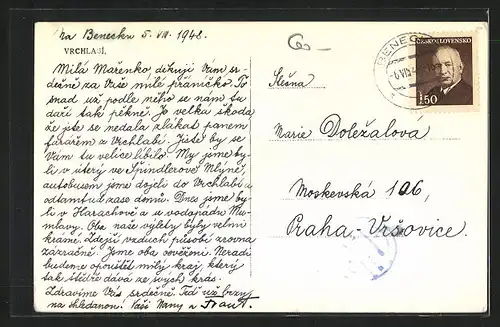 Na Benecku 5. VIII. 1948.
VRCHLABÍ,
Milá Mařenko, děkuji Vám sr-
dečně za Vaše milé přáníčko. To
snad už podle něho se nám tu
daří tak pěkně. Je velká škoda
že jste se nedala zlákat panem
farářem z Vrchlabí. Jistě by se
Vám tu velice líbilo. My jsme by-
li v úterý ve Špindlerově Mlýně,
autobusem jsme dojeli do Vrchlabí a
odtamtud zase domů. Dnes jsme by-
li v Harachově a u vodopádu Mu-
mlavy. Oba naše výlety byly velmi
krásné. Zdejší vzduch působí zrovna
zázračně. Jsme oba osvěženi. Neradi
budeme opouštět milý kraj, který
tak štědře dává ze svých krás.
Zdravíme Vás srdečně. Též už brzy
na shledanou! Vaši Nany a
6-
Slečna
Marie Doležalová
Moskevská 106,
Praha-Vršovice.
BENEC
ČESKOSLOVENSKO
1.50